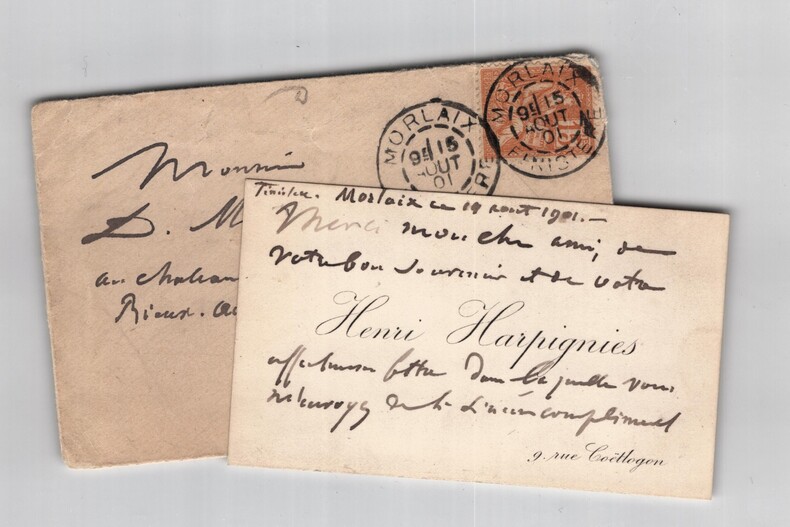 Monsieur
D. M
au chateau
Rieux
MORLAIX
9E 15
AOUT
01
RE
MORLAIX
9E 15
AOUT
01
FINISTERE
Finistère. Morlaix ce 14 aout 1901.-
Merci mon cher ami, de
votre bon souvenir et de votre
Henri Harpignies
affectueuse lettre dans laquelle vous
m'envoyez de si sincères compliments
9, rue Coëtlogon